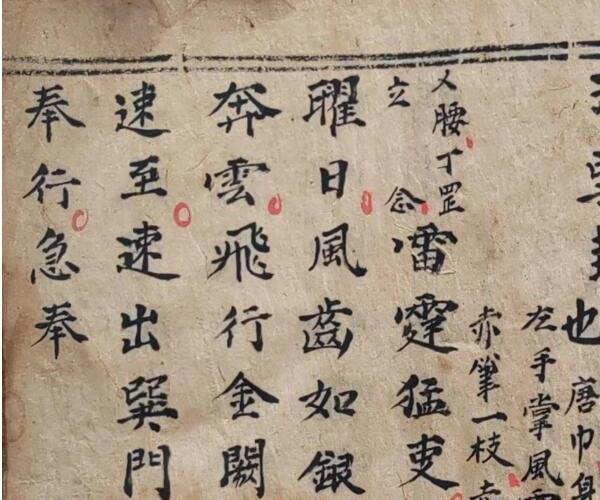 也唐巾
左手掌風
赤筆一枝
乂腰丁罡
立念
嚼霆猛吏
曜日風齒如銀
奔雲飛行金闕
速至速出巽門
奉行急奉